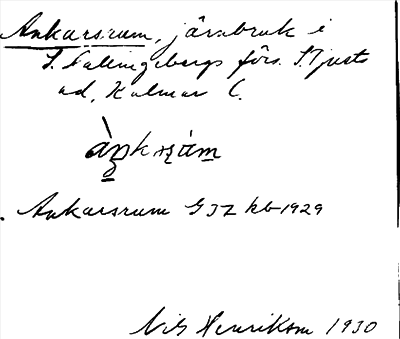 Ankarsrum, järnbruk i
S. Tallingebergs förs. S. Tjusts
hd, Kalmar l.
Ankarsrum GJZ kb 1929
Nils Henrikson 1930